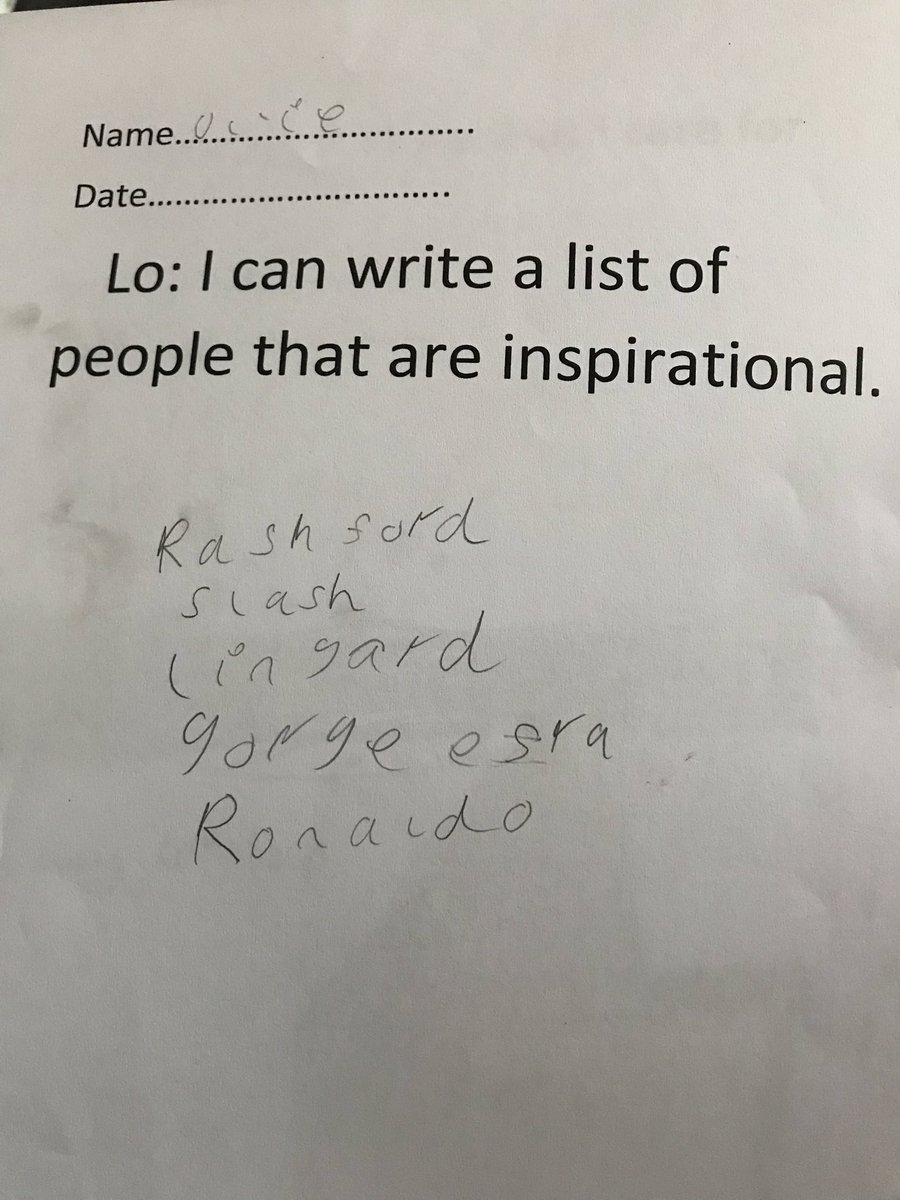 Name.................................
Date.................................
Lo: I can write a list of
people that are inspirational.
Rashford
slash
lingard
gorge esra
Ronaldo